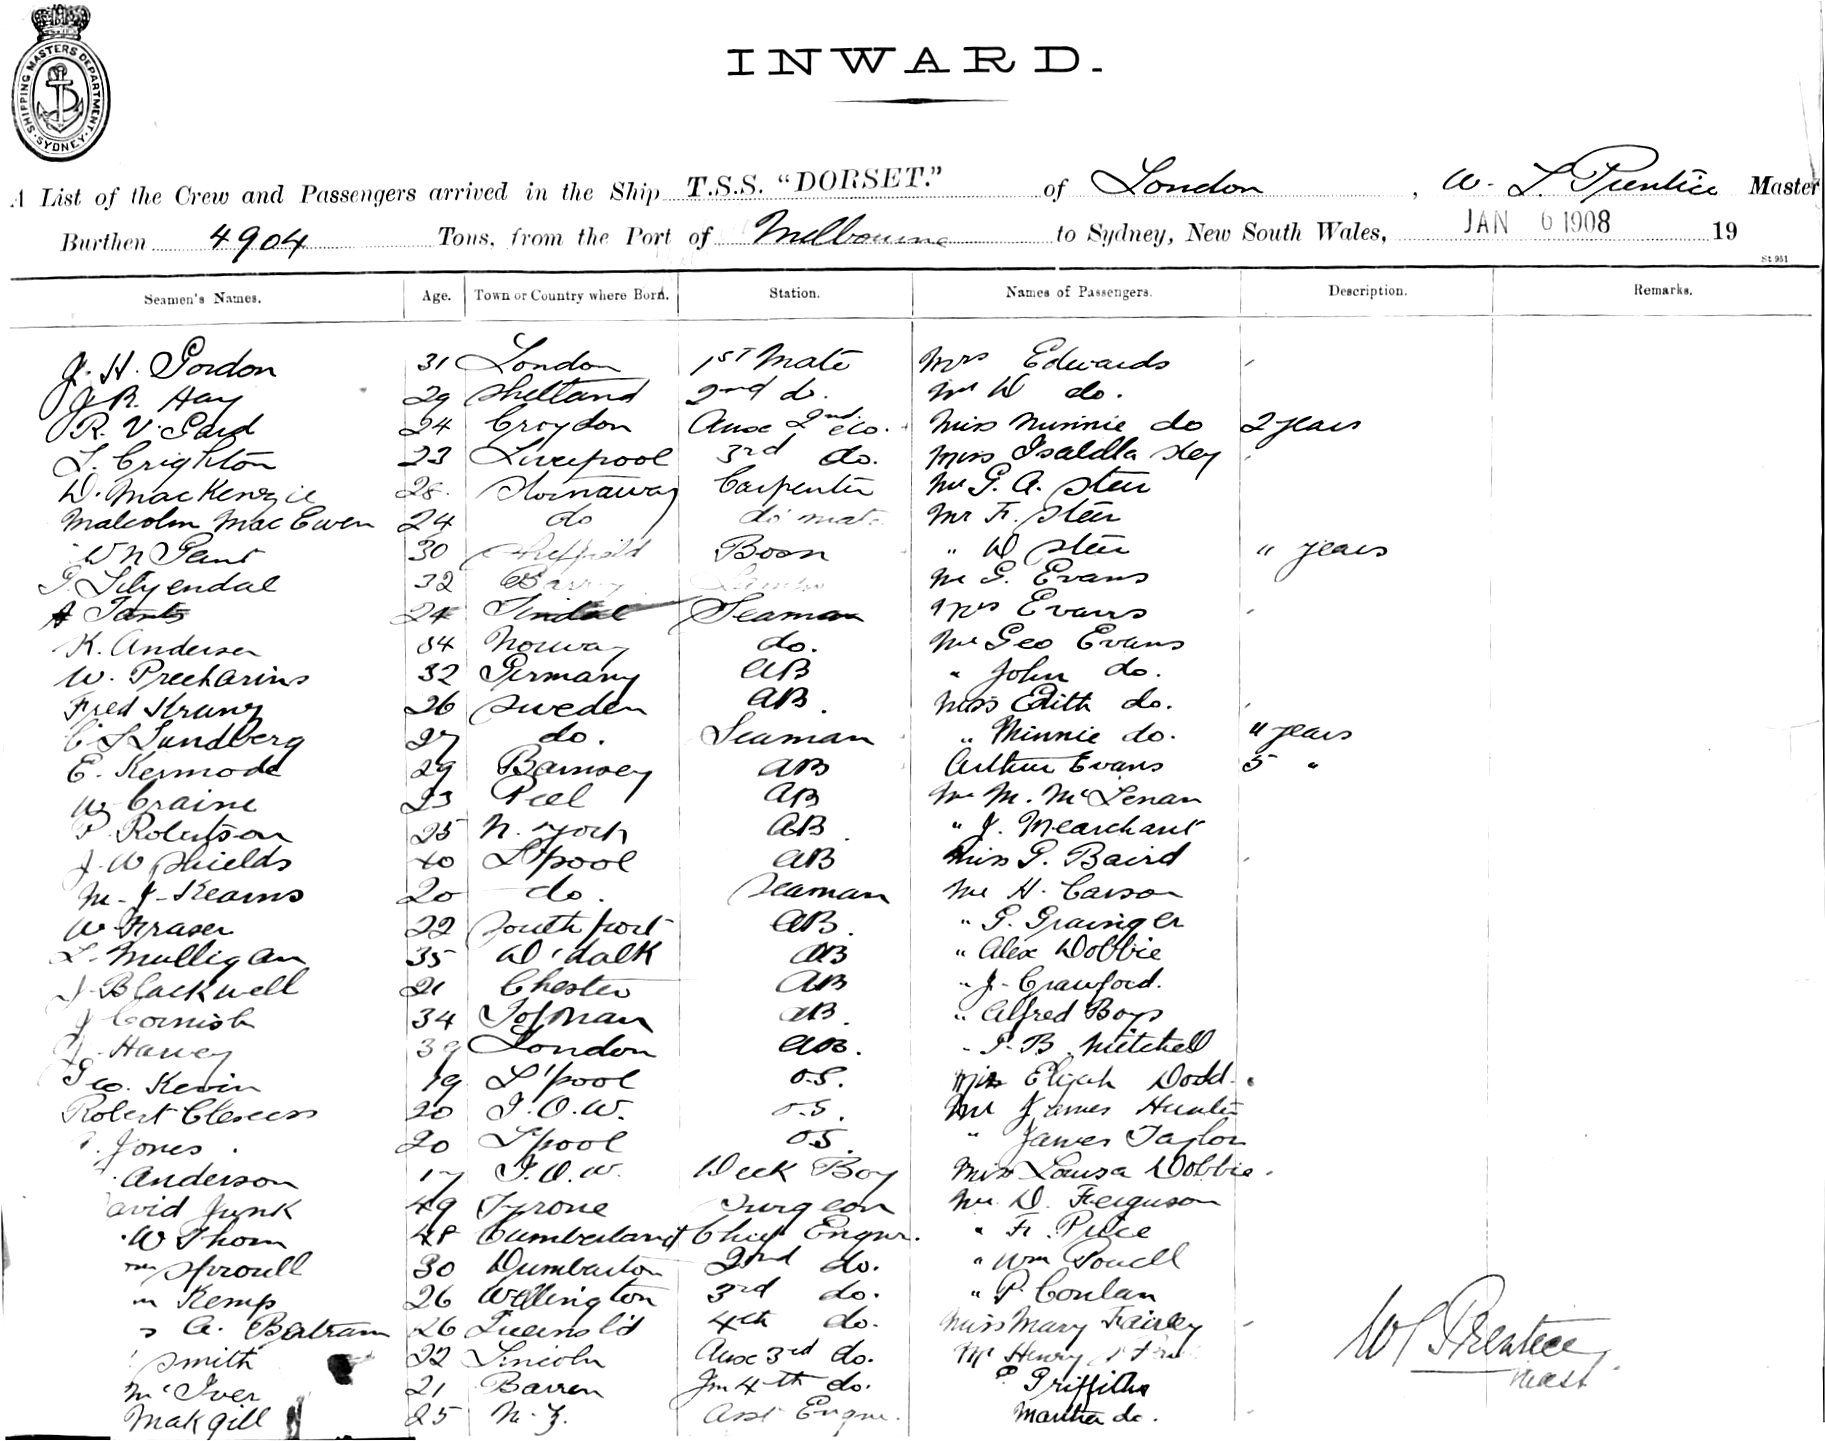 SHIPPING MASTERS DEPARTMENT. SYDNEY
INWARD.
A List of the Crew and Passengers arrived in the Ship T.S.S. "DORSET." of London, W. L. Prentice Master
Burthen 4904 Tons, from the Port of Melbourne to Sydney, New South Wales, JAN 6 1908 19
St 951
Seamen's Names. Age. Town or Country where Born. Station. Names of Passengers. Description. Remarks.
J. H. Gordon 31 London 1st Mate Mrs Edwards
J R. Hay 29 Shetland 2nd do. Mr W do.
R. V. Gard 24 Croydon Auxe 2nd do. Miss Minnie do 2 years
L. Crighton 23 Liverpool 3rd do. Miss Key
D. MacKenzie 28 Stornaway Carpenter Mr G. A. Steer
Malcolm MacEwen 24 do do mate Mr F. Steer
W N Gant 30 Sheffield Bosn " W Steer " years
G. Lilyendal 32 Barry Mr G. Evans
A 24 Seaman Mrs Evans
K. Andersen 34 Norway do. Mr Geo Evans
W. Precharins 32 Germany AB " John do.
Fred Strung 26 Sweden AB. Miss Edith do.
C S Sundberg 27 do. Seaman " Minnie do. " years
E. Kermode 29 Ramsey AB Arthur Evans 5 "
W. Craine 23 Peel AB Mr M. McLenan
P. Robertson 25 N. York AB " J. Mearchant
J. W Shields 40 L'pool AB Miss G. Baird
M. J. Kearns 20 do. Seaman Mr H. Carson
W Fraser 22 Southport AB. " G. Grainger
L. Mulligan 35 D'dalk AB " Alex Dobbie
J. Blackwell 21 Chester AB " J. Crawford.
J Cornish 34 I of Man AB. " Alfred Boys
J. Harvey 39 London AB. " P. B. Mitchell
Geo. Kevin 19 L'pool O.S. Elijah Dodd.
Robert 20 I.O.W. O.S. Mr James Hunter
Jones 20 L'pool OS. " James Taylor
Anderson 17 I.O.W. Deck Boy Miss Laura Dobbie.
avid Junk 49 Tyrone Surgeon Mr D. Ferguson
W Thom 48 Cumberland Chief Engnr. " F. Price
Sproull 30 Dumbarton 2nd do. " Wm Powell
Kemp 26 Wellington 3rd do. " P. Conlan
A. Bertram 26 Queensl'd 4th do. Miss Mary Fairley
Smith 22 Lincoln Auxe 3rd do. Mr Henry
McIver 21 Barren Jnr 4th do. P. Griffiths
Makgill 25 N.Z. Asst Engnr. Martha do.
W L Prentice
Mast